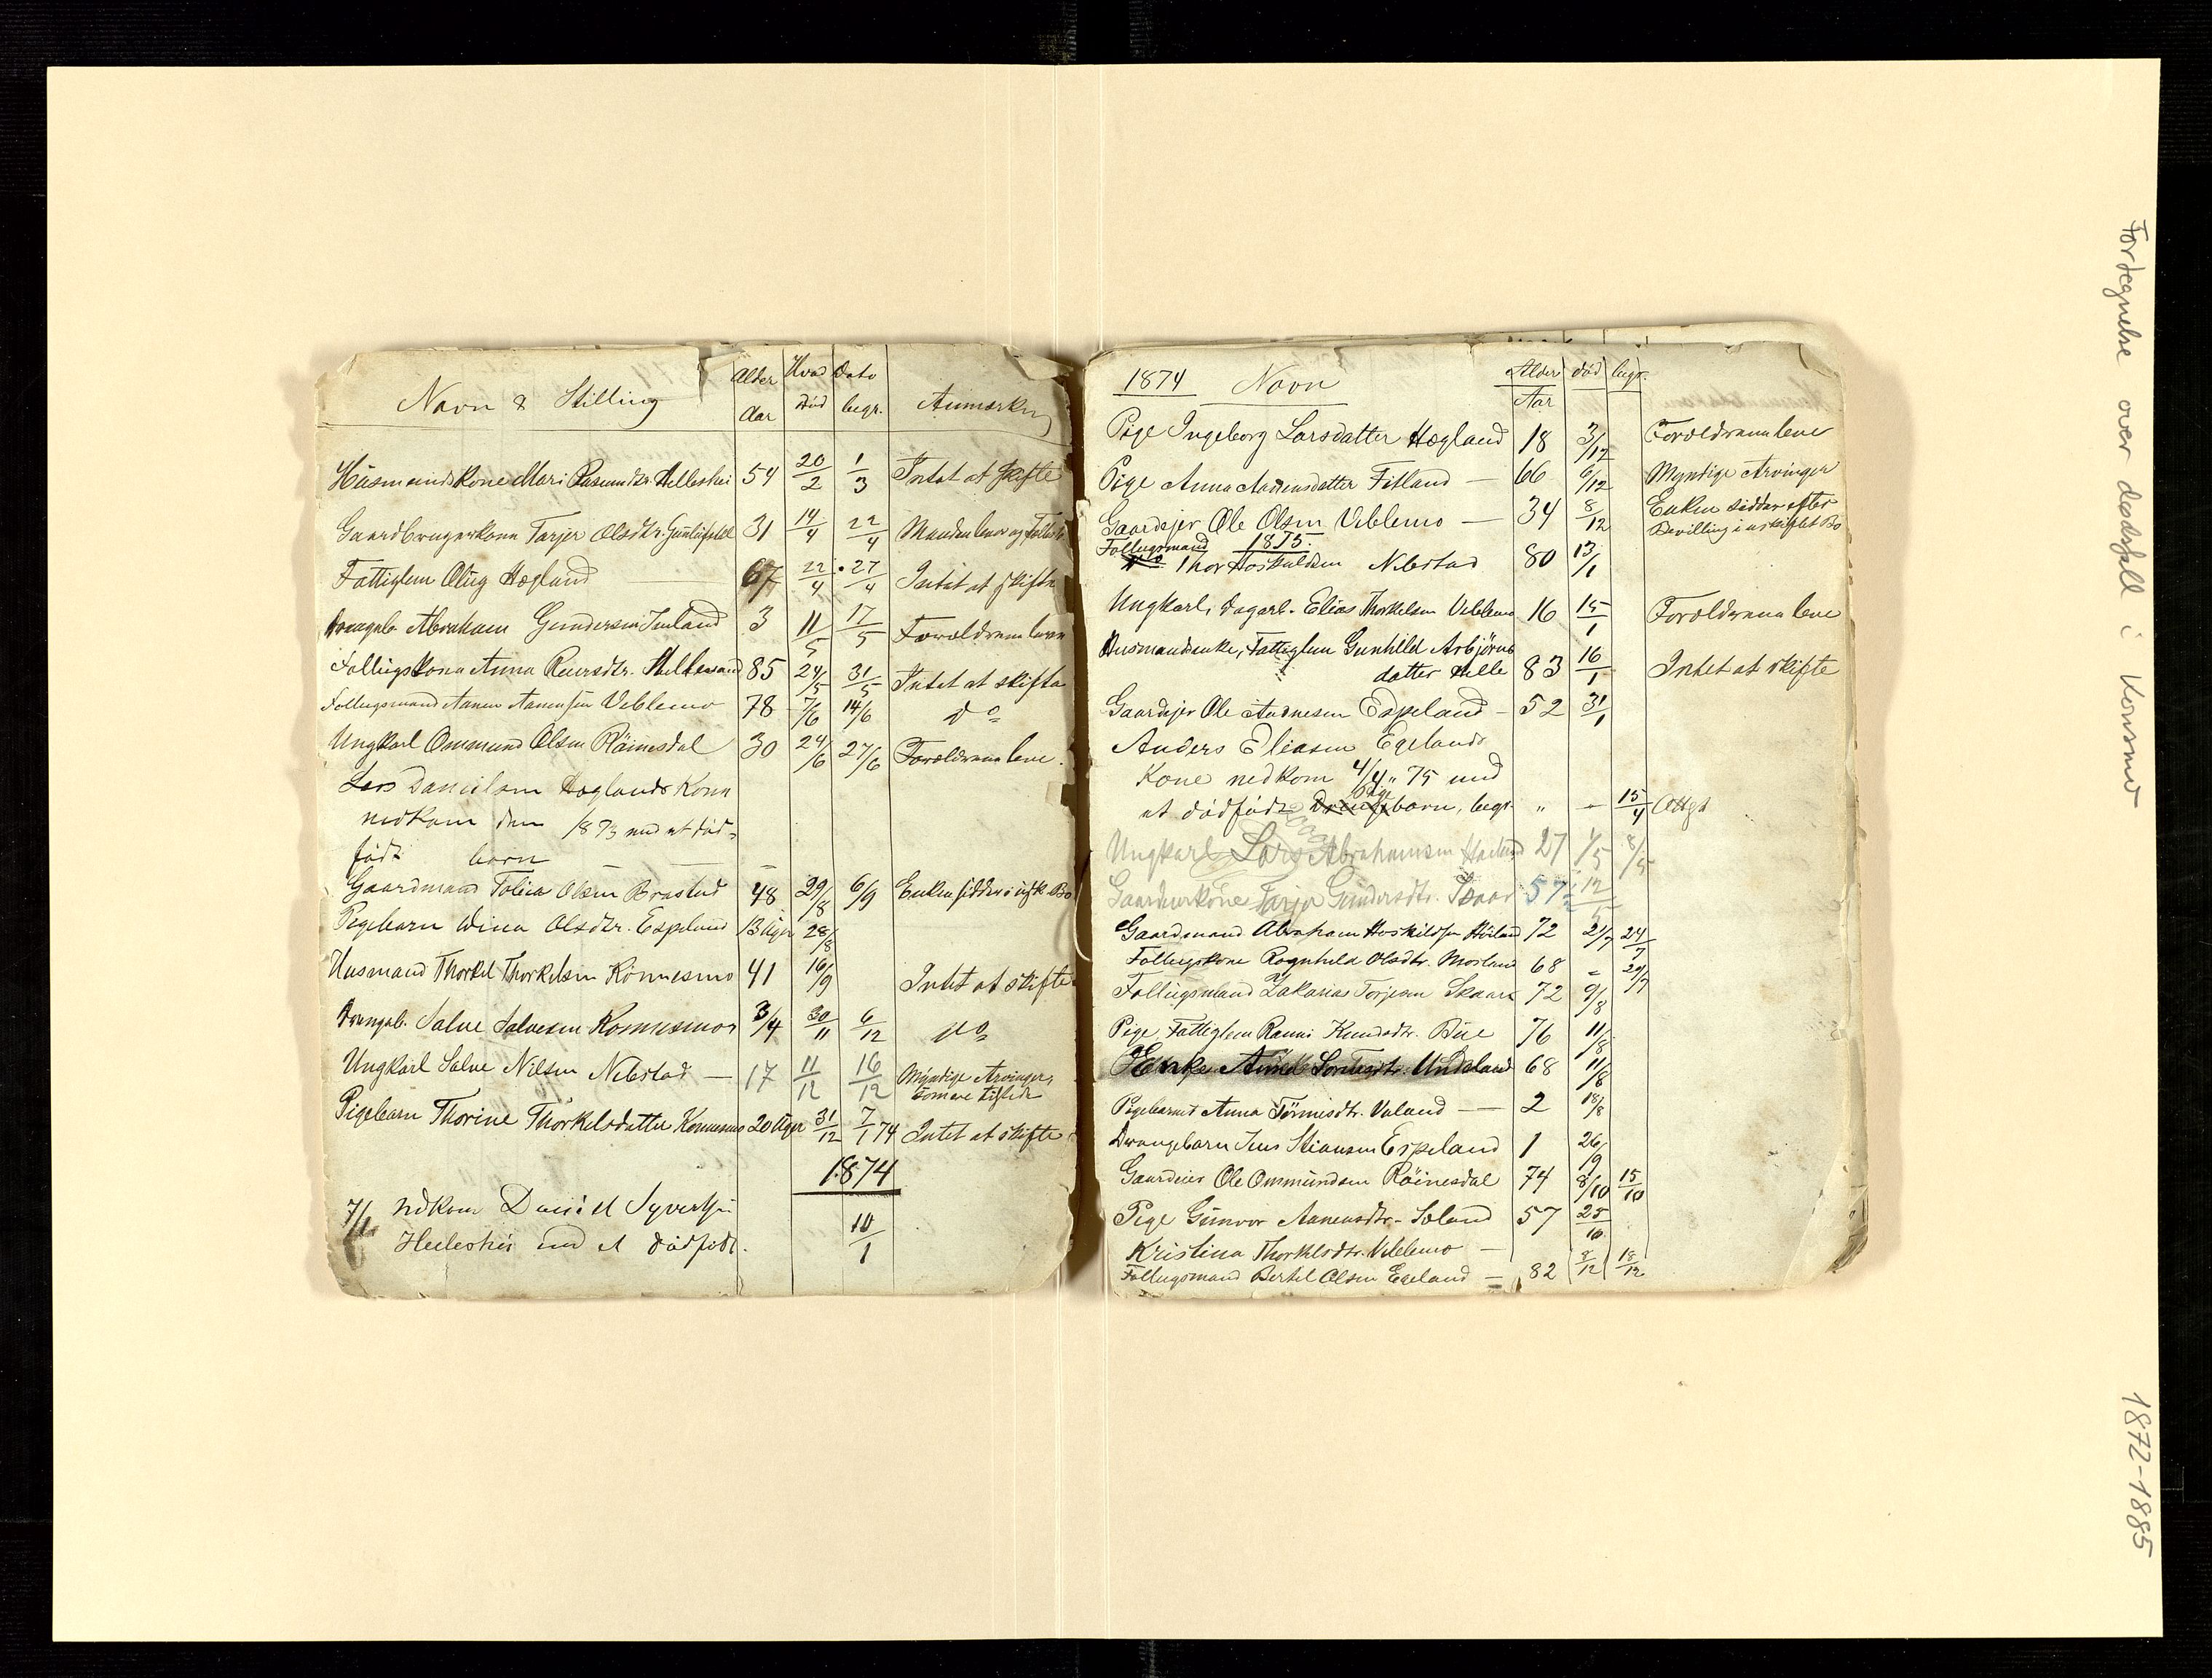 Navn & Stilling Alder Aar Hvad Død Dato begr. Anmærkn
Husmandskone Mari Rasmusdtr. Helleshei 54 20/2 1/3 Intet at skifte
Gaardbrugerkone Tarjer Olsdtr. 31 14/4 22/4 Manden lever og
Fattiglem Olug Hægland 67 22/4 27/4 Intet at skifte
Drengeb. Abraham Gundersen 3 11/5 17/5 Forældrene leve
Follugskone Anna 85 24/5 31/5 Intet at skifte
Follugsmand Aanen Aanensen Veblemo 78 7/6 14/6 do
Ungkarl Ommund Olsen Röinesdal 30 24/6 27/6 Forældrene leve.
Lars Danielsen Hæglands Kone
nedkom den 1873 med et död-
födt barn
Gaardmand Tobias Olsen Brastad 48 29/8 6/9 Enken sidder i uskt. Bo
Pigebarn Olsdtr. Espeland 13 Uger 28/8
Husmand Thorkel Thorkelsen Konnesmo 41 16/9 Intet at skifte
Drengeb. Salve Salvesen Konnesmo 3/4 30/11 6/12 do
Ungkarl Salve Nilsen Nebstad — 17 11/12 16/12 Myndige Arvinger,
Pigebarn Thorine Thorkelsdatter Konnesmo 20 Uger 31/12 7/1 74 Intet at skifte
1874
7/1 nedkom Daniel Syvertsen
Helleshei med et dödfödt. 10/1
1874 Navn Alder Aar död begr.
Pige Ingeborg Larsdatter Hægland 18 3/12 Forældrene leve
Pige Anna Aanensdatter Fitland — 66 6/12 Myndige Arvinger
Gaardejer Ole Olsen Veblemo — 34 8/12 Enken sidder efter
Bevilling i uskiftet Bo
1875.
Follugsmand Thor Hoskuldsen Nebstad 80 13/1
Ungkarl, Dagarb. Elias Thorkelsen Veblemo 16 15/1 Forældrene leve
Husmandsenke, Fattiglem Gunhild Asbjörns
datter Helle 83 16/1 Intet at skifte
Gaardejer Ole Audnesen Espeland — 52 31/1
Anders Eliasen Egelands
Kone nedkom 4/4 " 75 med
et dödfödt Pige barn, begr. " - 15/4
Ungkarl Lars Abrahamsen 27 1/5 8/5
Gaardeierkone Tarjer Gundersdtr. 57 12/5
Gaardmand Abraham Hoskildsen 72 21/7 24/7
Follugskone Ragnhild Olsdtr. Mosland 68 - 29/7
Follugsmand Zakarias Torjesen Skaare 72 9/8
Pige, Fattiglem Ranni Knudsdtr. Bue 76 11/8
Enke 68 11/8
Pigebarnet Anna Tönnisdtr. Valand — 2 18/8
Drengebarn Jens Stiansen Espeland 1 26/9
Gaardeier Ole Ommundsen Röinesdal 74 8/10 15/10
Pige Gunvor Aanensdtr. Soland 57 25/10
Kristina Thorkelsdtr. Veblemo —
Follugsmand Bertel Olsen Egeland — 82 8/12 18/12
Fortegnelse over dødsfall i Konsmo
1872-1885